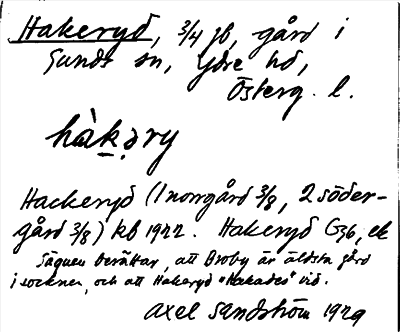 Hakeryd, 3/4 jb, gård i
Sunds sn, Ydre hd,
Österg. l.
hàkəry
Hackeryd (1 norrgård 3/8, 2 söder-
gård 3/8) kb 1922. Hakeryd G36, ek
Sägnen berättar, att Broby är äldsta gård
i socknen, och att Hakeryd "hakades" vid.
Axel Sandström 1929